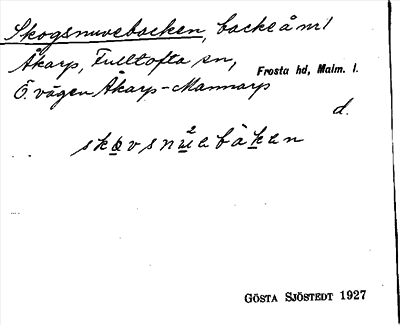 Skogsnuvebacken, backe å nr 1
Åkarp, Fulltofta sn,
Frosta hd, Malm. l.
Ö. vägen Åkarp-Mannarp
d.
GÖSTA SJÖSTEDT 1927